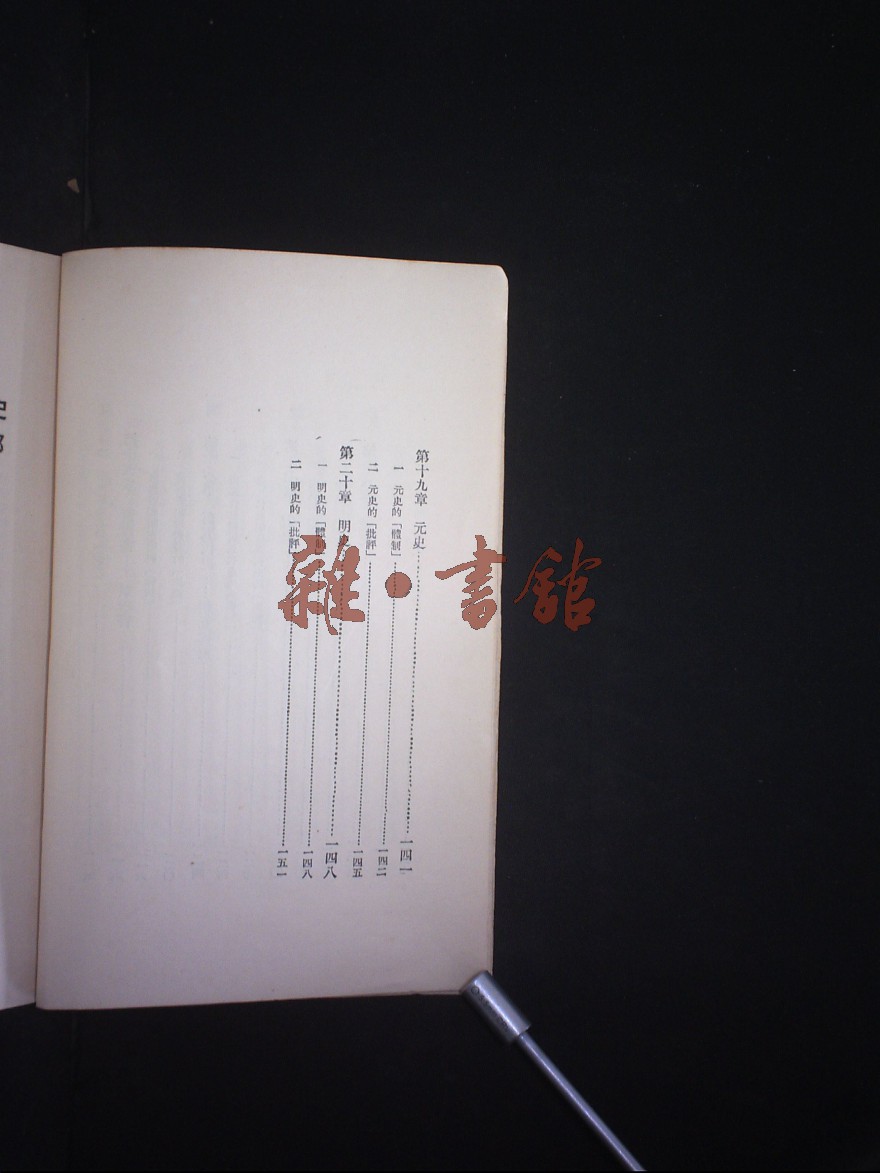 第十九章 元史……一四一
一 元史的「體制」……一四二
二 元史的「批評」……一四五
第二十章 明史……一四八
一 明史的「體制」……一四八
二 明史的「批評」……一五一
史
雜·書館